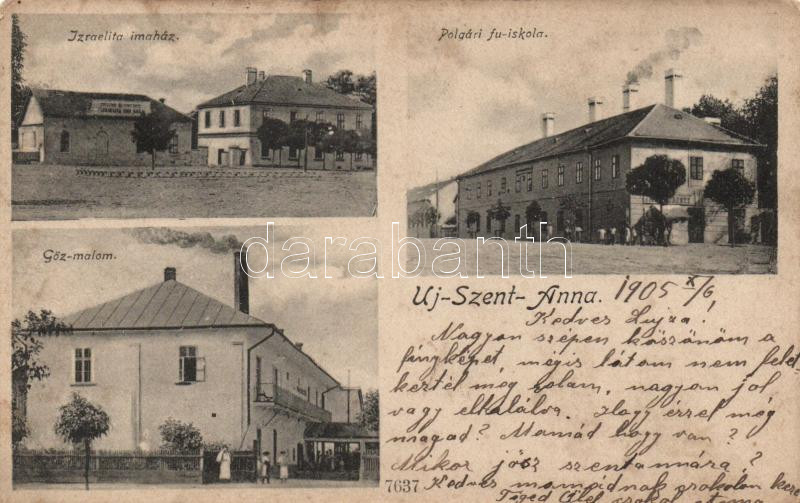 Izraelita imaház.
Polgári fu-iskola.
Göz-malom.
darabanth.com
Uj-Szent-Anna. 1905 X/6
Kedves Lujza!
Nagyon szépen köszönöm a
fényképet, mégis látom nem felet
keztél meg rólam, nagyon jól
vagy eltalálva. Hogy érzel meg
magad? Mamád hogy van?
Mikor jösz szentannára?
7637 Kedves mamádnak csokolom kez
Téged Ölel csokol